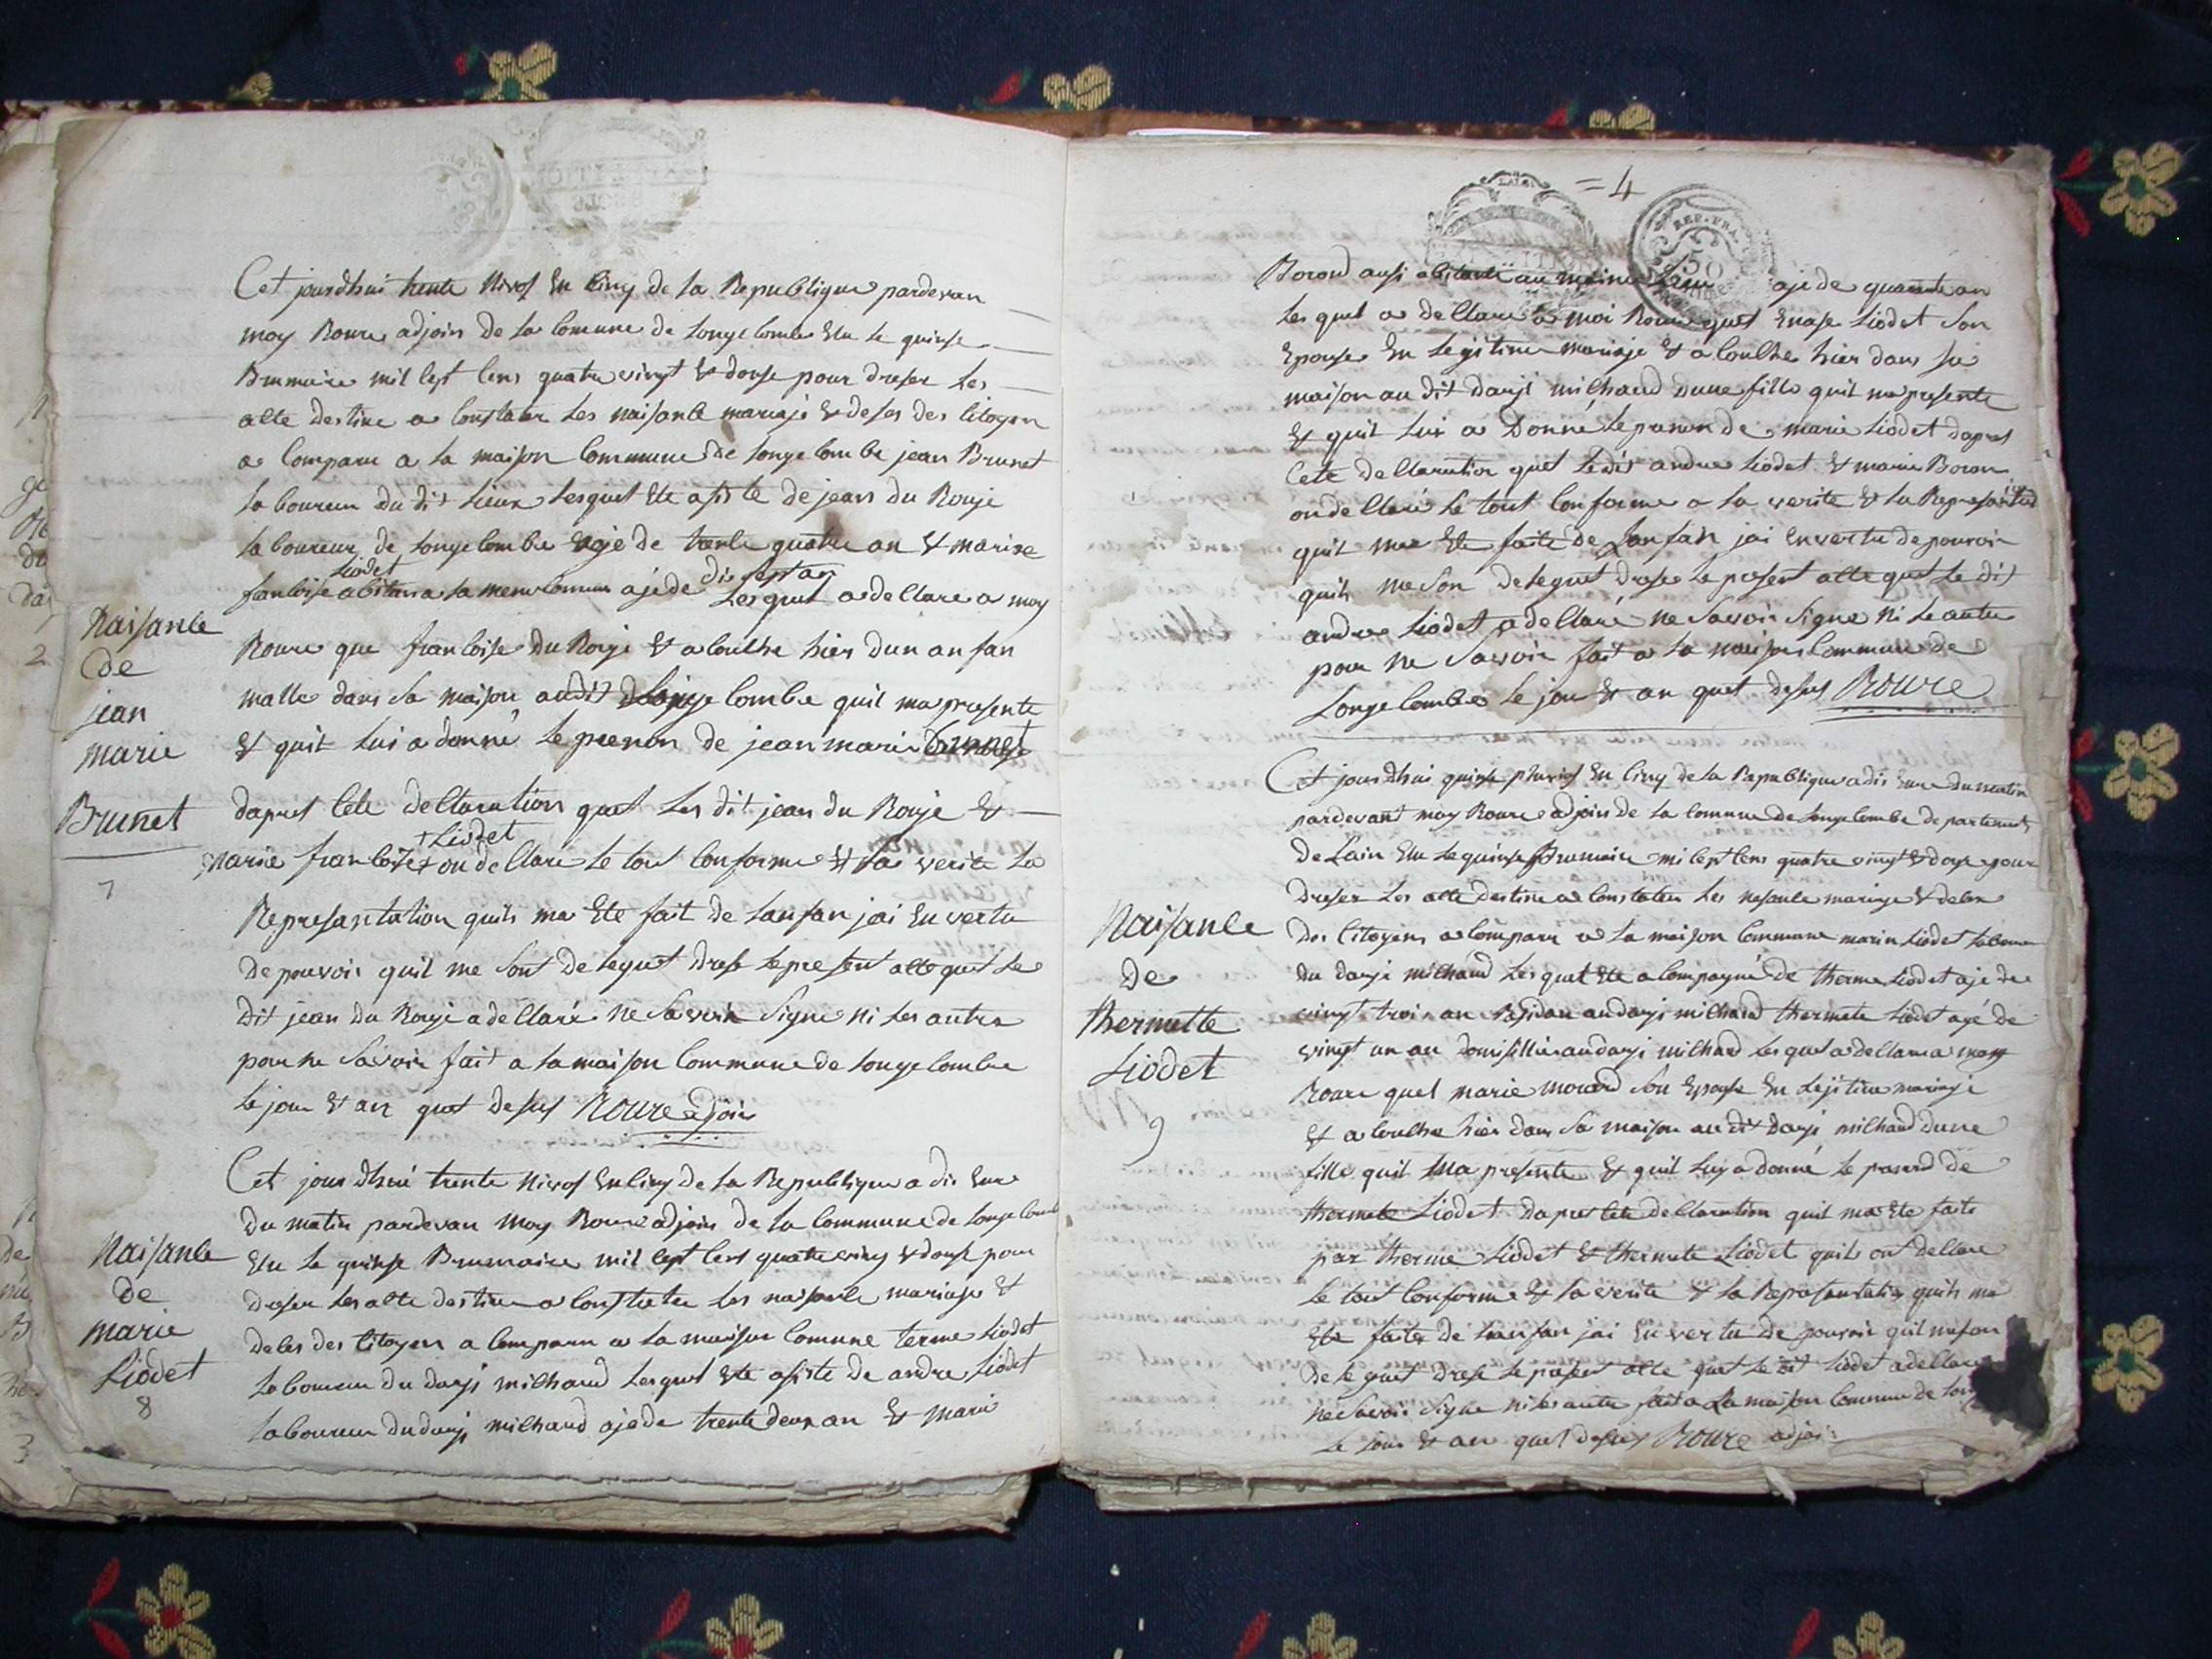 Cet jourdhui trente Nivos En Cinq de la Republique pardevan
moy Roure adjoin de la Comune de Longecombe Elu le quinse
Brumaire mil sept Cens quatre vingt & douse pour dreser les
atte destine a Constater les naisance mariaje & deses des Citoyen
a Comparu a la maison Commune de longe combe jean Brunet
laboureur du dit Lieux lesquel Ete asiste de jean du Rouje
laboureur de longe combe aje de trente quatre an & marie
Liodet
francoise abitan a la meme Comune ajede dis sept an lesquel a dellare a moy
Roure que francoise du Rouje & acoulhe hier dun anfan
malle dans sa maison audit Longe combe quil ma presente
& quil lui a donné le prenon de jean marie Brunet
dapres Cete dellaration quel les dit jean du Rouje &
+ Liodet
marie francoise + on dellare le tout Conforme & la verite la
Represantation quils ma Ete fait de lanfan jai En vertu
de pouvoir quil me sont delegué drese le present atte quel le
dit jean du Rouje a dellaré ne Savoir Signe ni les autre
pour ne Savoir fait a la maison Commune de longe combe
le jour & an quel desus Roure adjoin
Naisance
de
jean
marie
Brunet
7
Cet jour dhui trente Nivos En Cinq de la Republique a dis Eure
du matin pardevan moy Roure adjoin de la Commune de longe comb
Elu le quinse Brumaire mil sept Cens quatre ving & douse pour
dreser les atte destine a Constater les naisance mariaje &
deces des Citoyen a Comparu a la maison Comune terme Liodet
laboureur du danji milhaud lesquel Ete asiste de andre Liodet
laboureur du danji milhaud aje de trente deux an & marie
Naisance
de
marie
Liodet
8
= 4
REP. FRA.
50
Borond ausi abitant au meme Lieu aje de quarante an
lesquel a dellare a moi Roure quel Liodet son
Epouse En legitime mariaje & a Coulhe hier dans sa
maison au dit danji milhaud dune fille quil ma presente
& quil lui a Donné le prenon de marie Liodet dapres
Cete dellaration quel le dit andre Liodet & marie Boron
on dellaré le tout Conforme a la verite & la Represantation
quil ma Ete faite de Lanfan jai En vertu de pouvoir
quils me Son delegué drese le present atte quel le dit
andre Liodet a dellaré ne Savoir Signe ni le autre
pour ne Savoir fait a la maison Commune de
Longe combe le jour & an quel desus Roure
Cet jourdhui quinse pluvios En Cinq de la Republique a dis Eure du matin
pardevant moy Roure adjoin de la Comune de longe combe departement
de Lain Elu le quinse Brumaire mil sept Cens quatre vingt & douse pour
dreser les atte destine a Constater les nesance mariaje & deces
des Citoyens a Comparu a la maison Commune marin Liodet laboureur
du danji milhaud lesquel Ete a Compagné de therme Liodet aje de
vingt trois an Residan au danji milhaud thermete Liodet agé de
vingt un an domisillie au danji milhaud lesquel a dellare a moy
Roure quel marie son Epouse En Lejitime mariaje
& a Coulhe hier dans Sa maison au dit danji milhaud dune
fille quil Ma presente & quil luy a donné le prenon de
thermete Liodet dapres Cete dellaration quil ma Ete faite
par therme Liodet & thermete Liodet quils ont dellare
le tout Conforme & la verite & la Represantation quils ma
Ete faite de Lanfan jai En vertu de pouvoir quil me son
delegué drese le present atte quel le dit Liodet a dellare
ne Savoir Signe ni les autre fait a La maison Commune de
le jour & an quel desus Roure adjoin
Naisance
de
thermette
Liodet
9